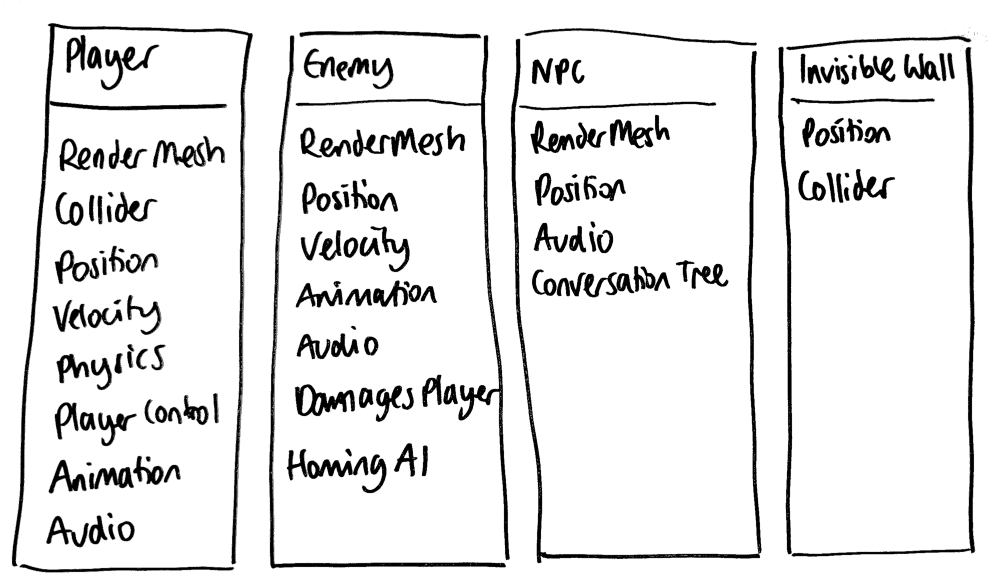 Player
Render Mesh
Collider
Position
Velocity
Physics
Player Control
Animation
Audio
Enemy
RenderMesh
Position
Velocity
Animation
Audio
Damages Player
Homing AI
NPC
RenderMesh
Position
Audio
Conversation Tree
Invisible Wall
Position
Collider